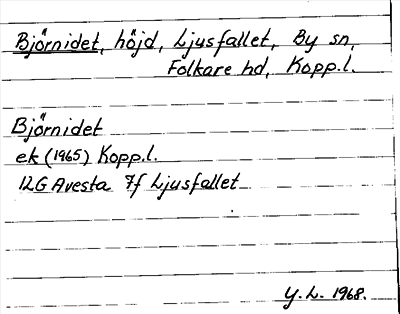 Björnidet, höjd, Ljusfallet, By sn,
Folkare hd, Kopp.l.
Björnidet
ek (1965) Kopp.l.
12G Avesta 7f Ljusfallet
Y.L. 1968.